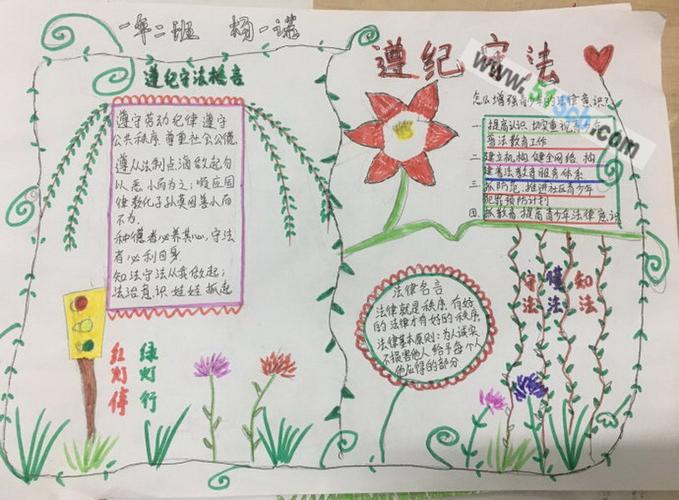 一年二班 杨一诺
遵纪守法
遵纪守法格言
遵守劳动纪律 遵守
公共秩序 尊重社会公德
遵从法制点滴做起勿
以恶小而为之；顺应国
律教化子孙莫因善小而
不为.
种德者必养其心，守法
有必利自身
知法守法从我做起；
法治意识 娃娃抓起
红灯停
绿灯行
怎么增强青少年的法律意识？
一 提高认识 切实重视
普法教育工作
二 建立机构 健全网络 构
建普法教育服务体系
三 抓防范，推进社区青少年
犯罪预防计划
四 抓教育 提高青少年法律意识
法律名言
法律就是秩序 有好
的法律才有好的秩序
法律基本原则：为人诚实
不损害他人 给予每个人
他应得的部分
守法
懂法
知法